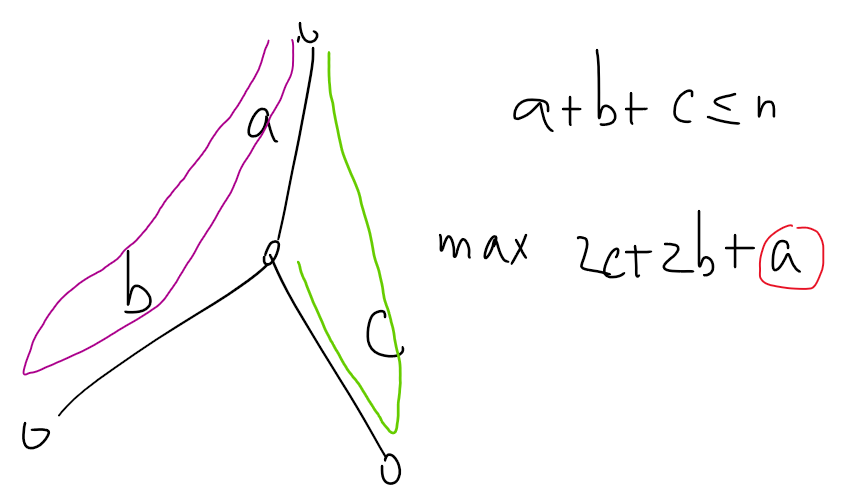 a
b
c
a+b+c≤n
max 2c+2b+a